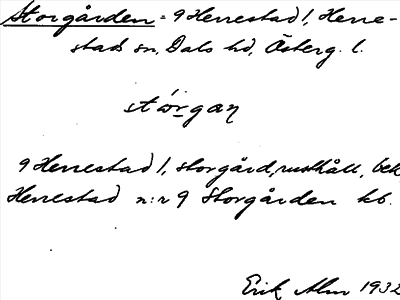 Storgården = 9 Herrestad 1, Herre-
stads sn, Dals hd, Österg. l.
stórgaɳ
9 Herrestad 1, storgård, rusthåll, bek
Herrestad n:r 9 Storgården kb.
Erik Alm 1932